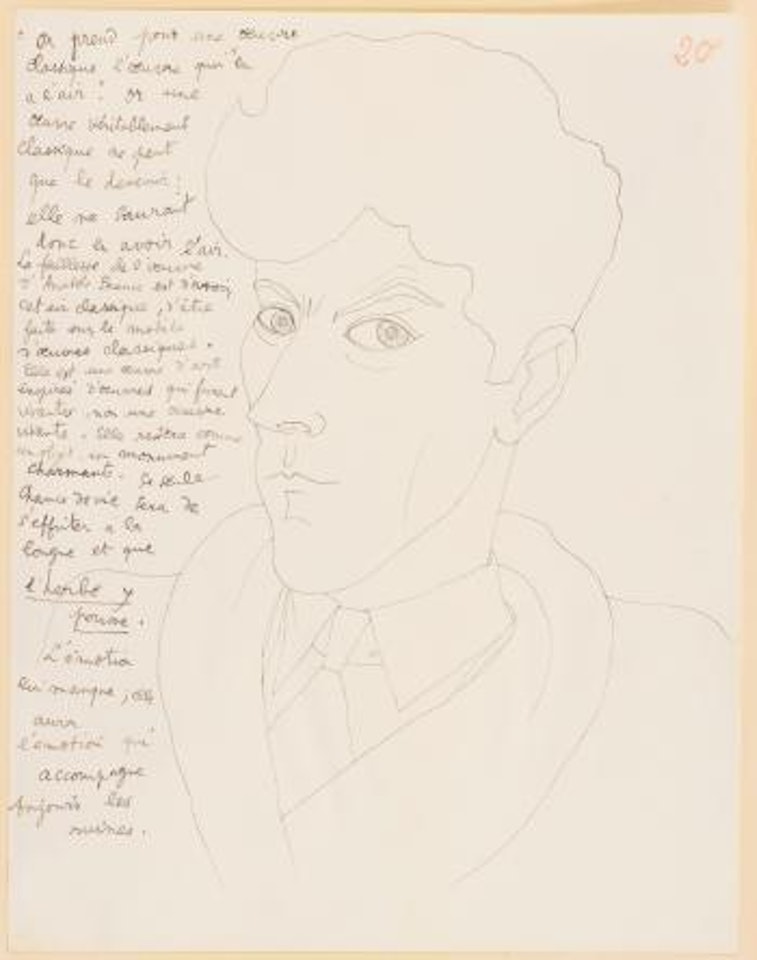 20
On prend pour une œuvre
classique l'œuvre qui en
a l'air : or une
œuvre véritablement
classique ne peut
que le devenir ;
elle ne saurait
donc en avoir l'air.
La faiblesse de l'œuvre
d'Anatole France est d'avoir
cet air classique, d'être
faite sur le modèle
d'œuvres classiques.
Elle est une œuvre d'art
d'œuvres qui furent
vivantes, non une œuvre
vivante. Elle restera comme
un monument
charmante. Sa seule
chance de vie sera de
s'effriter à la
longue et que
l'herbe y
pousse.
L'émotion
lui manque, elle
aura
l'émotion qui
accompagne
toujours les
ruines.